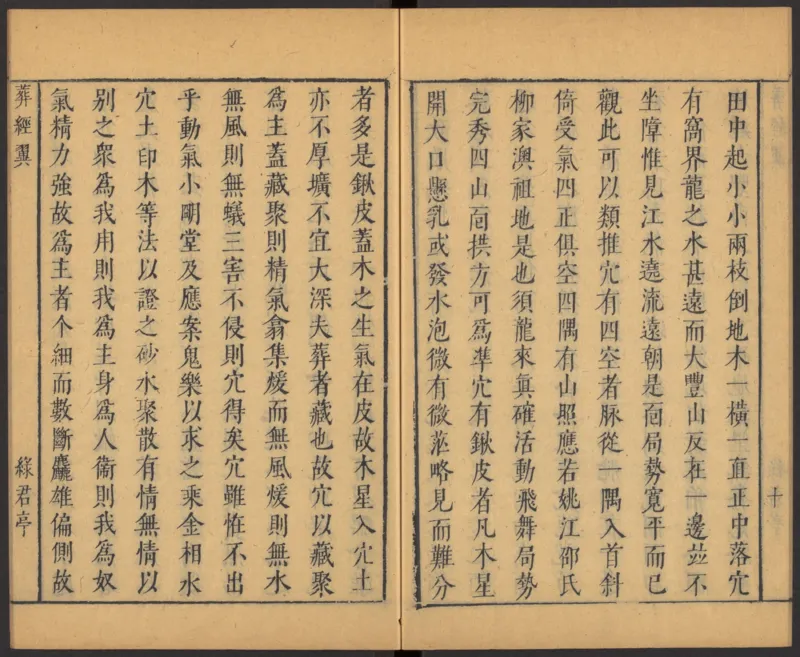 田中起小小兩枝倒地木一橫一直正中落穴
有窩界龍之水甚遠而大豐山反在一邊並不
坐障惟見江水遶流遠朝是面局勢寬平而已
觀此可以類推穴有四空者脉從一隅入首斜
倚受氣四正俱空四隅有山照應若姚江邵氏
柳家澳祖地是也須龍來眞確活動飛舞局勢
完秀四山面拱方可爲準穴有鍬皮者凡木星
開大口懸乳或發水泡微有微茫略見而難分
者多是鍬皮蓋木之生氣在皮故木星入穴土
亦不厚壙不宜大深夫葬者藏也故穴以藏聚
爲主蓋藏聚則精氣翕集煖而無風煖則無水
無風則無蟻三害不侵則穴得矣穴雖恠不出
乎動氣小明堂及應案鬼樂以求之乘金相水
穴土印木等法以證之砂水聚散有情無情以
别之衆爲我用則我爲主身爲人衞則我爲奴
氣精力強故爲主者个細而數斷麤雄偏側故
葬經翼
綠君亭
十